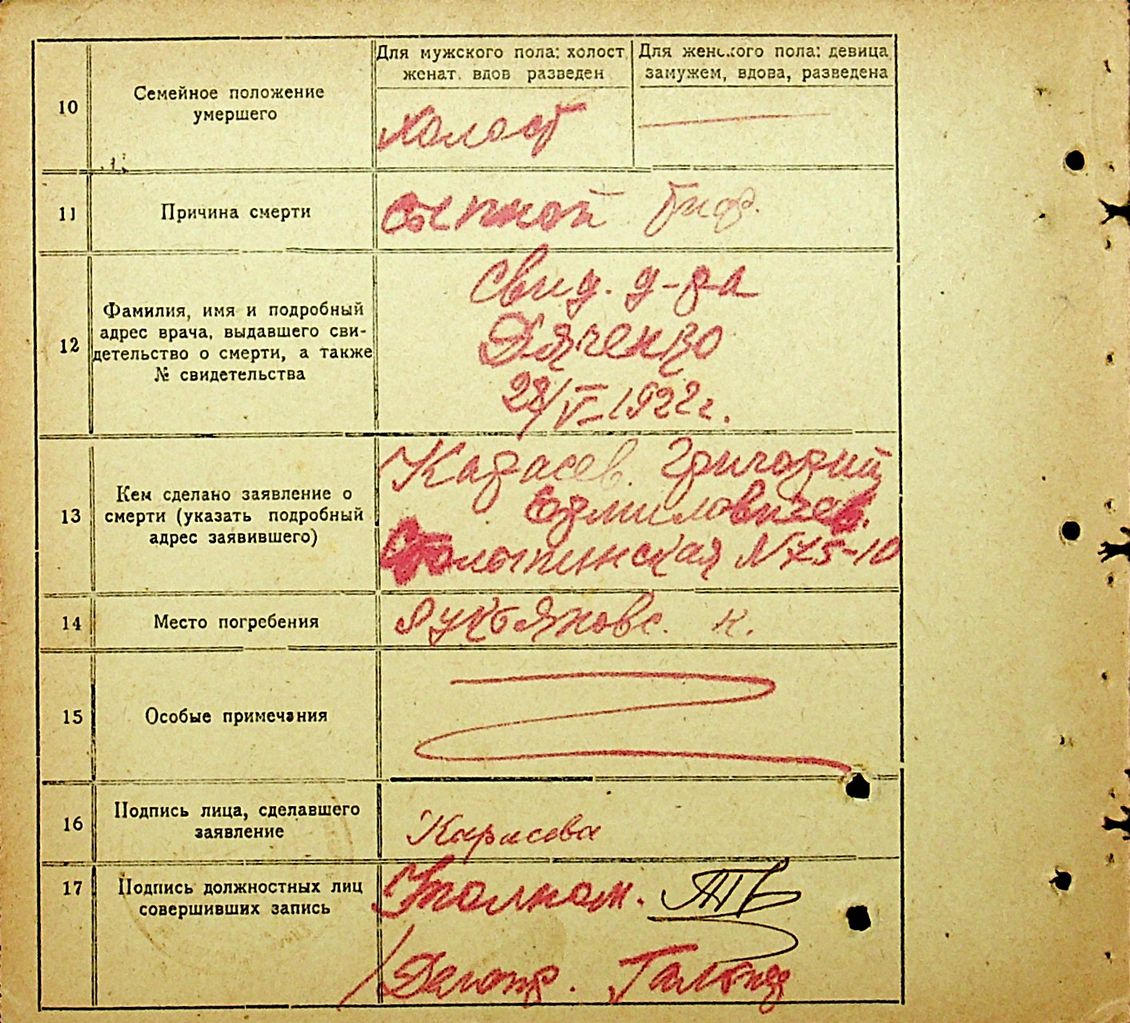 Для мужского пола: холост, женат, вдов разведен
Для женского пола: девица замужем, вдова, разведена
10
Семейное положение
умершего
Холост
11
Причина смерти
Сыпной тиф.
12
Фамилия, имя и подробный
адрес врача, выдавшего сви-
детельство о смерти, а также
№ свидетельства
Свид. д-ра
Дяченко
28/V-1922 г.
13
Кем сделано заявление о
смерти (указать подробный
адрес заявившего)
Карасев. Григорий
Ермилович
Столыпинская N 75-10
14
Место погребения
Лукьяновс. к.
15
Особые примечания
16
Подпись лица, сделавшего
заявление
Карасева
17
Подпись должностных лиц
совершивших запись
Уполном.
Делопр.